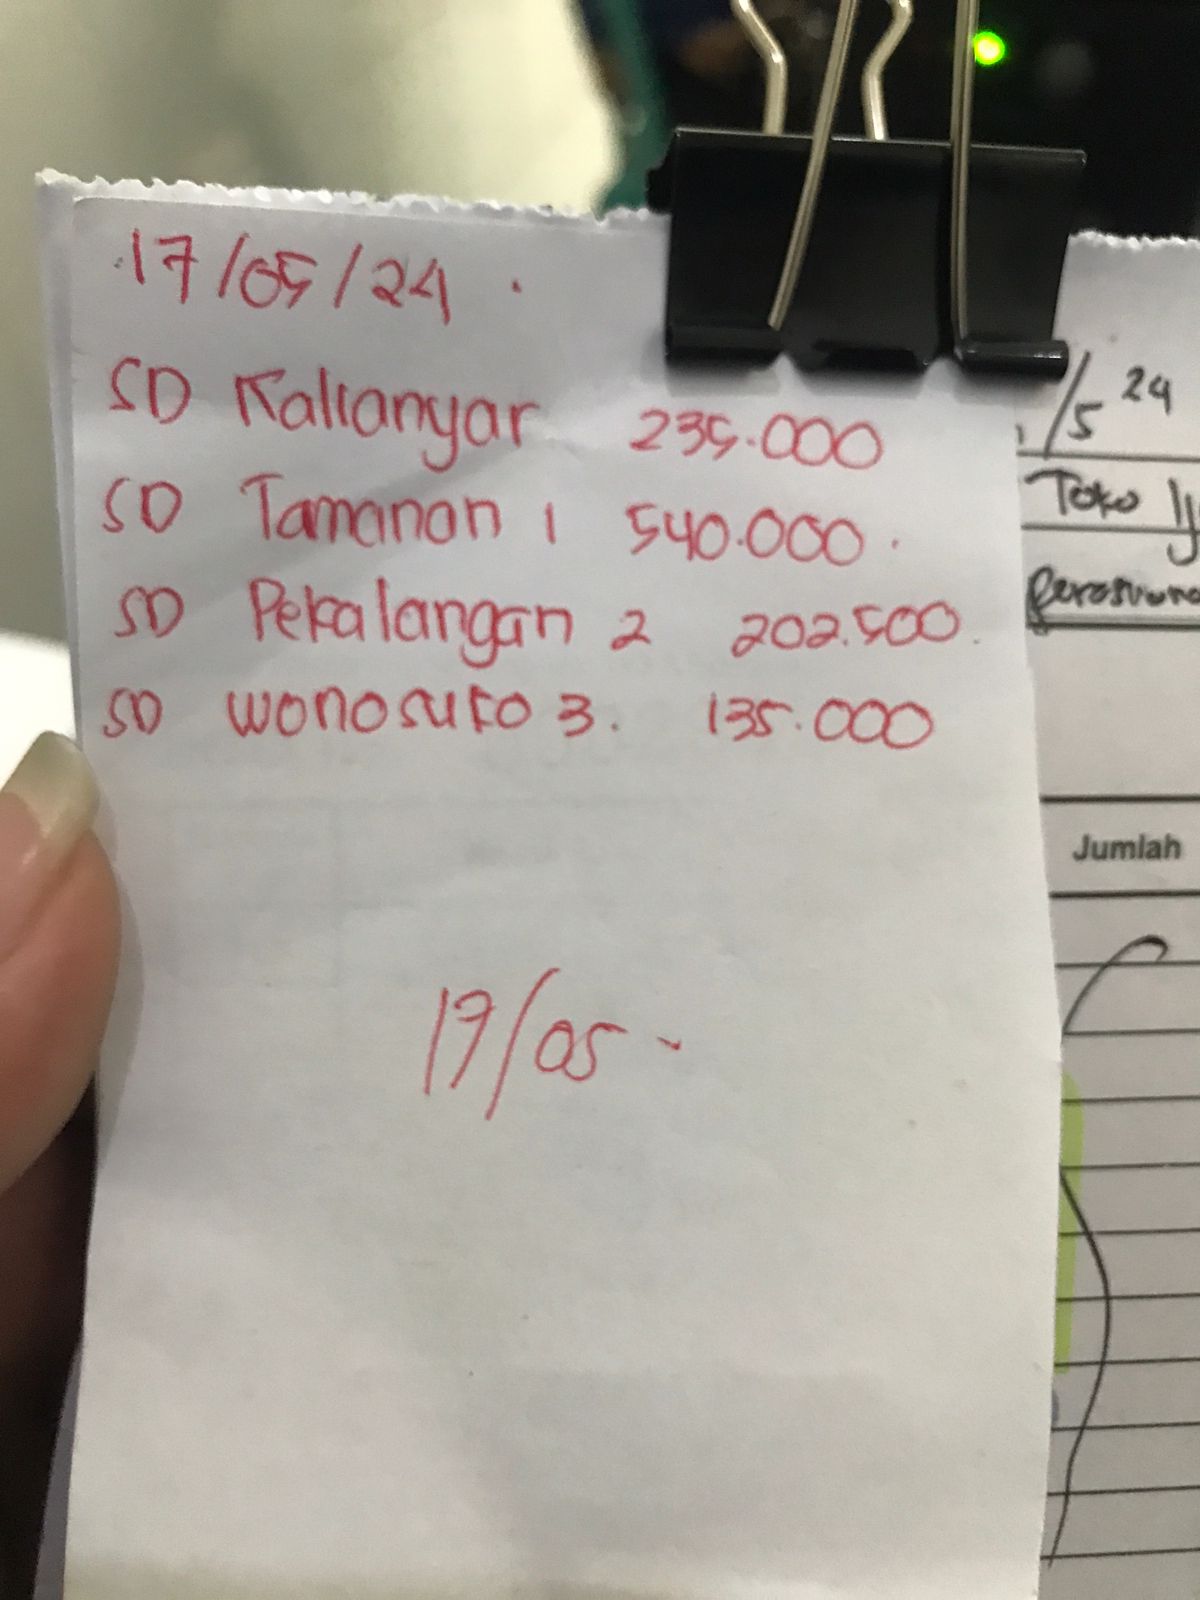 17/05/24
SD Kalianyar 235.000
SD Tamanan 1 540.000
SD Pekalangan 2 202.500
SD Wonosuko 3. 135.000
17/05
/5 24
Toko
Jumlah